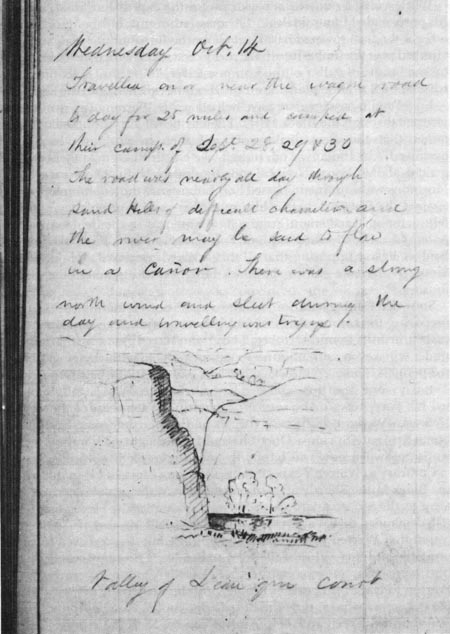 Wednesday Oct. 14
Travelled on or near the wagon road
to day for 25 miles and camped at
their camp of Sept. 28. 29 & 30
The road was nearly all day through
sand Hills of difficult character and
the river may be said to flow
in a cañon. There was a strong
north wind and sleet during the
day and travelling was
Valley of L'eau qui court